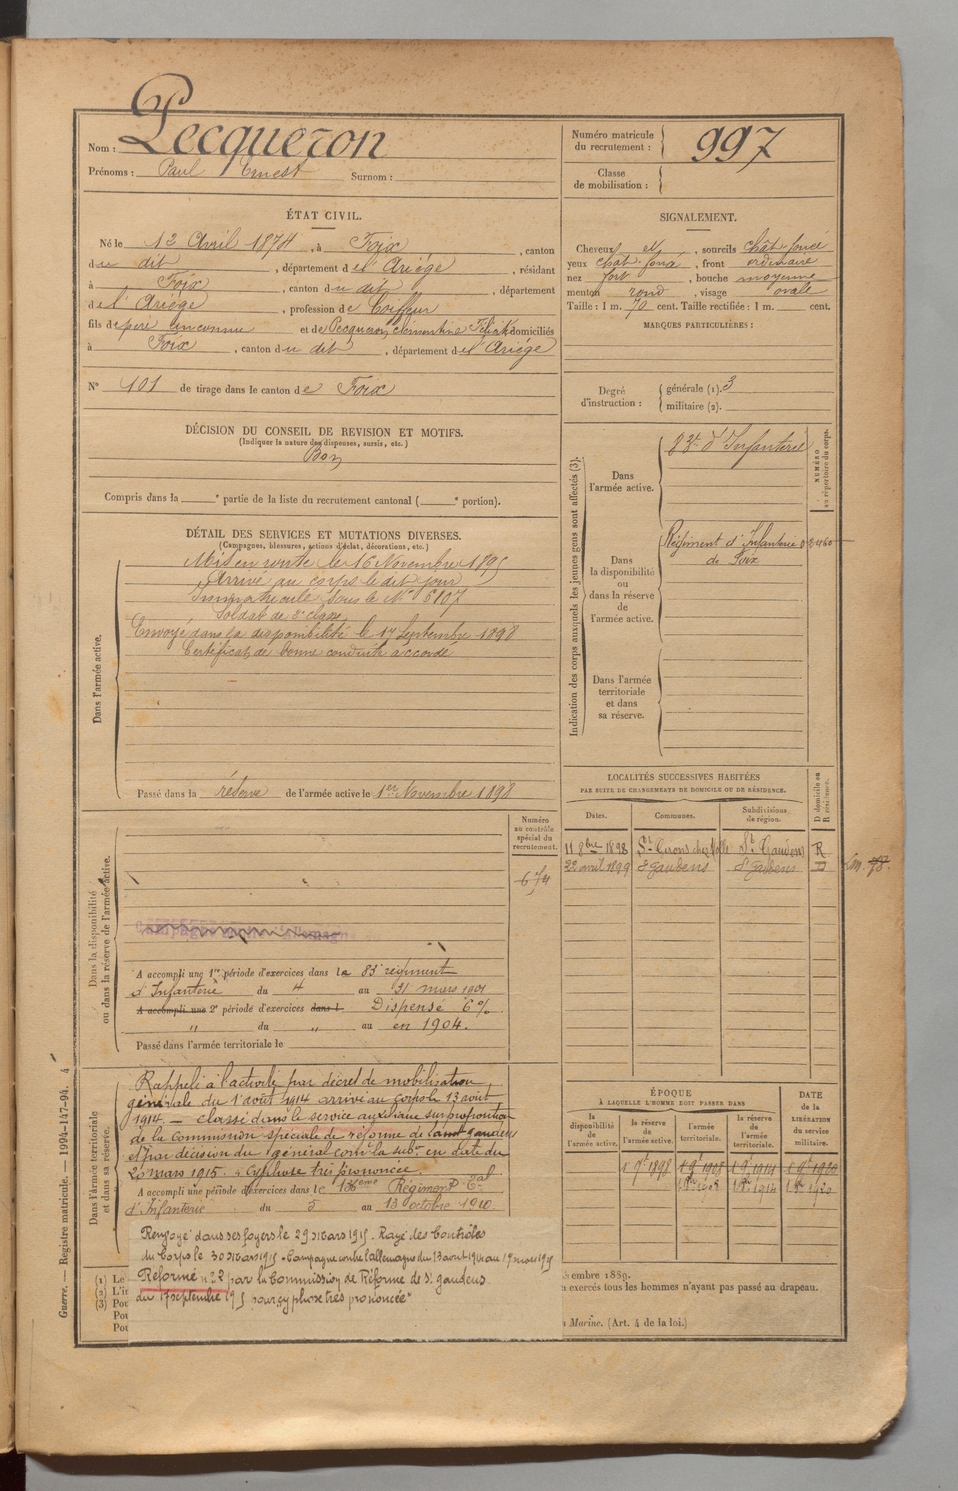 Nom : Pecqueron
Prénoms : Paul Ernest Surnom :
Numéro matricule du recrutement : 997
Classe de mobilisation :
ÉTAT CIVIL.
Né le 12 Avril 1874, à Foix, canton
du dit, département de l'Ariège, résidant
à Foix, canton du dit, département
de l'Ariège, profession de Coiffeur
fils de père inconnu et de Pecqueron, Clémentine domiciliés
à Foix, canton du dit, département de l'Ariège
N° 101 de tirage dans le canton de Foix
DÉCISION DU CONSEIL DE REVISION ET MOTIFS.
(Indiquer la nature des dispenses, sursis, etc.)
Bon
Compris dans la e partie de la liste du recrutement cantonal ( e portion).
SIGNALEMENT.
Cheveux et, sourcils chât. foncé
yeux chât. foncé, front ordinaire
nez fort, bouche moyenne
menton rond, visage ovale
Taille : 1 m. 70 cent. Taille rectifiée : 1 m. cent.
MARQUES PARTICULIÈRES :
Degré d'instruction : générale (1). 3
militaire (2).
DÉTAIL DES SERVICES ET MUTATIONS DIVERSES.
(Campagnes, blessures, actions d'éclat, décorations, etc.)
Dans l'armée active.
Mis en route le 16 Novembre 1895
Arrivé au corps le dit jour
Immatriculé sous le N° 6107
Soldat de 2e classe
Envoyé dans la disponibilité le 17 Septembre 1898
Certificat de bonne conduite accordé
Passé dans la réserve de l'armée active le 1er Novembre 1898
Indication des corps auxquels les jeunes gens sont affectés (3).
NUMÉRO au répertoire du corps.
Dans l'armée active.
d'Infanterie
Dans la disponibilité ou dans la réserve de l'armée active.
Régiment d'Infanterie
de Foix
Dans l'armée territoriale et dans sa réserve.
LOCALITÉS SUCCESSIVES HABITÉES
PAR SUITE DE CHANGEMENTS DE DOMICILE OU DE RÉSIDENCE.
Dates. Communes. Subdivisions de région. D domicile ou R résidence.
11 8bre 1898 St Girons chez St Gaudens R
22 avril 1899 St Gaudens St Gaudens D
Dans la disponibilité ou dans la réserve de l'armée active.
Numéro au contrôle spécial du recrutement.
Campagne contre l'Allemagne
A accompli une 1re période d'exercices dans le 83e régiment
d'Infanterie du 4 au 31 mars 1901
A accompli une 2e période d'exercices dans l Dispensé 6%
" du " au en 1904.
Passé dans l'armée territoriale le
Dans l'armée territoriale et dans sa réserve.
Rappelé à l'activité par décret de mobilisation
générale du 1 août 1914 arrivé au corps le 13 août
1914. — classé dans le service auxiliaire sur proposition
de la commission spéciale de réforme de Saint gaudens
et par décision du général comt la subon en date du
20 mars 1915. "Cyphose très prononcée.
A accompli une période d'exercices dans le 136ème Régiment Tal
d'Infanterie du 5 au 13 octobre 1910
Renvoyé dans ses foyers le 29 mars 1915. Rayé des Contrôles
du Corps le 30 mars 1915. Campagne contre l'allemagne du 13 aout 1914 au 19 mars 1915
Réformé n° 2 par la Commission de Réforme de St gaudens
du 17 septembre 1915 pour cyphose très prononcée"
ÉPOQUE
À LAQUELLE L'HOMME DOIT PASSER DANS
la disponibilité de l'armée active. la réserve de l'armée active. l'armée territoriale. la réserve de l'armée territoriale.
DATE de la LIBÉRATION du service militaire.
1 9bre 1898 1 9bre 1908 1 9bre 1914 1 9bre 1920
1 8bre 1908 1 8bre 1914 1 8bre 1920
(1) Le
(2) L'i
(3) Pou
Pou
Pou
embre 1889.
exercés tous les hommes n'ayant pas passé au drapeau.
Marine. (Art. 4 de la loi.)
Guerre. — Registre matricule. — 1994-147-94. 4